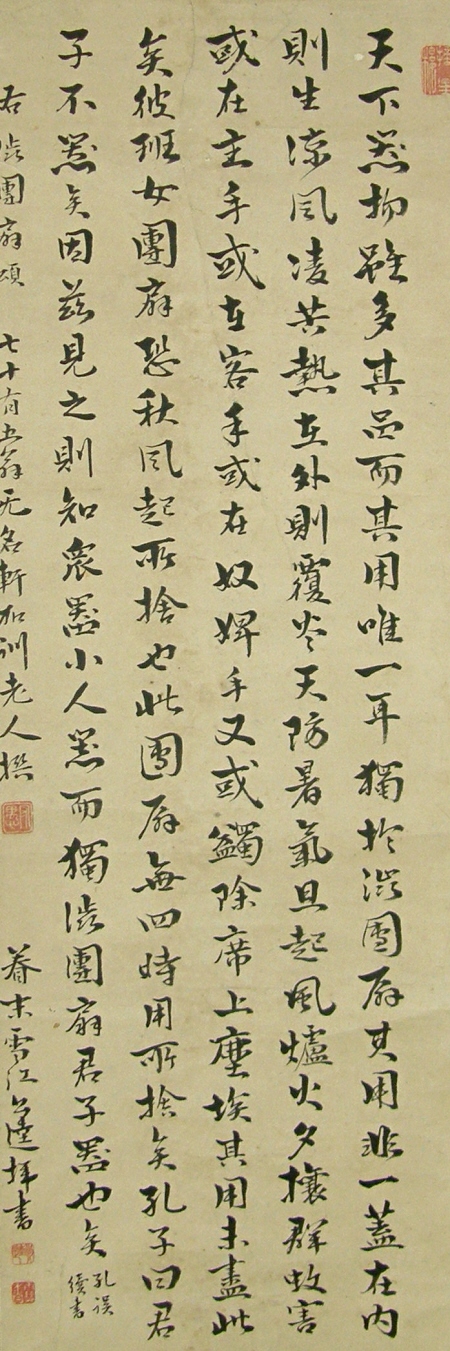 天下器物雖多其品而其用唯一耳獨於澁團扇其用非一蓋在内
則生涼風凌苦熱在外則覆炎天防暑氣旦起風爐火夕攘群蚊害
或在主手或在客手或在奴婢手又或蠲除席上塵埃其用未盡此
矣彼班女團扇恐秋風起所捨也此團扇無四時用所捨矣孔子曰君
子不器矣因茲見之則知衆器小人器而獨澁團扇君子器也矣
孔誤
續書
右澁團扇頌 七十有五翁无名軒加訓老人撰
暮末雪江 拜書